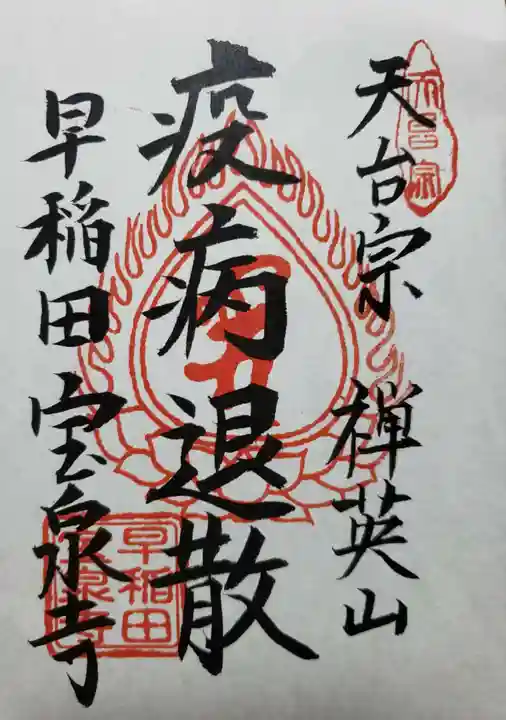 天台宗
天台宗 禅英山
疫病退散
早稲田 宝泉寺
早稲田
宝泉寺